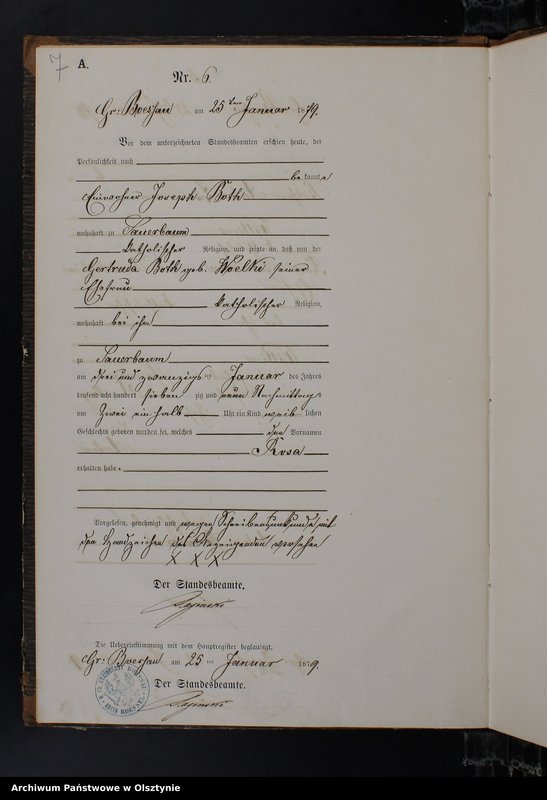 7 A.
Nr. 6.
Gr: Boessau am 25ten Januar 1879.
Vor dem unterzeichneten Standesbeamten erschien heute, der
Persönlichkeit nach
be kannte
Einwohner Joseph Both
wohnhaft zu Sauerbaum
katholischer Religion, und zeigte an, daß von der
Gertruda Both geb. Woelki seiner
Ehefrau
katholischer Religion,
wohnhaft bei ihm
zu Sauerbaum
am drei und zwanzigsten Januar des Jahres
tausend acht hundert sieben zig und neun Nachmittags
um Zwei ein halb Uhr ein Kind weib lichen
Geschlechts geboren worden sei, welches den Vornamen
Rosa
erhalten habe.
Vorgelesen, genehmigt und wegen Schreibensunkunde mit
den Handzeichen des Anzeigenden versehen
X X X
Der Standesbeamte.
Die Uebereinstimmung mit dem Hauptregister beglaubigt.
Gr: Boessau am 25 ten Januar 1879.
Der Standesbeamte.
Archiwum Państwowe w Olsztynie